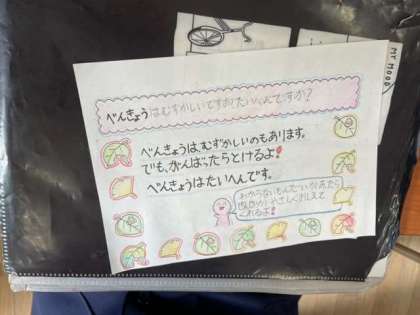 べんきょうはむずかしいですか?たいへんですか?
べんきょうは、むずかしいのもあります。
でも、がんばったらとけるよ!
べんきょうはたいへんです。
わからないもんだいがあったら
やさしくおしえて
くれるよ!
MY MOOD